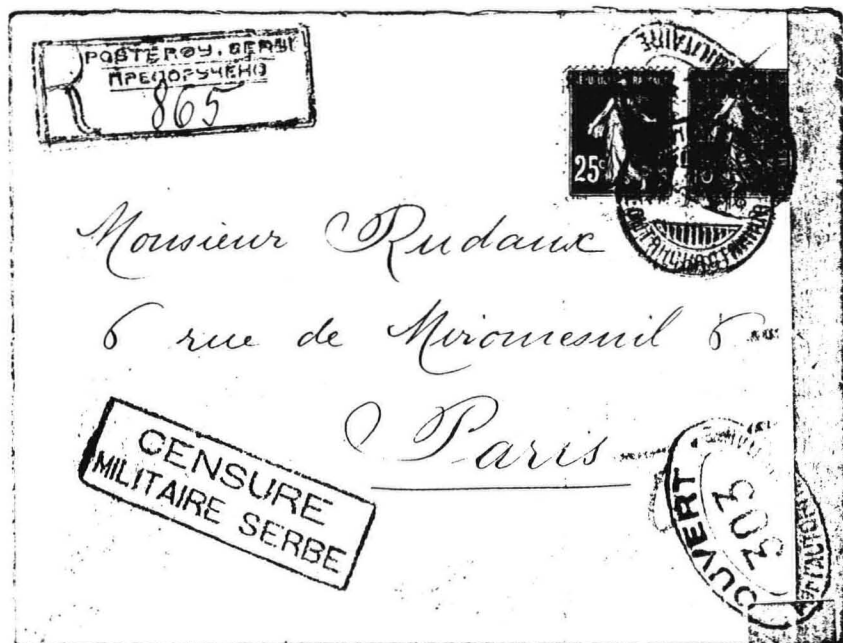 POSTE ROY. SERBE
ПРЕПОРУЧЕНО
R 865
25c
Monsieur Rudaux
6 rue de Miromesnil 6
Paris
CENSURE
MILITAIRE SERBE
OUVERT
303